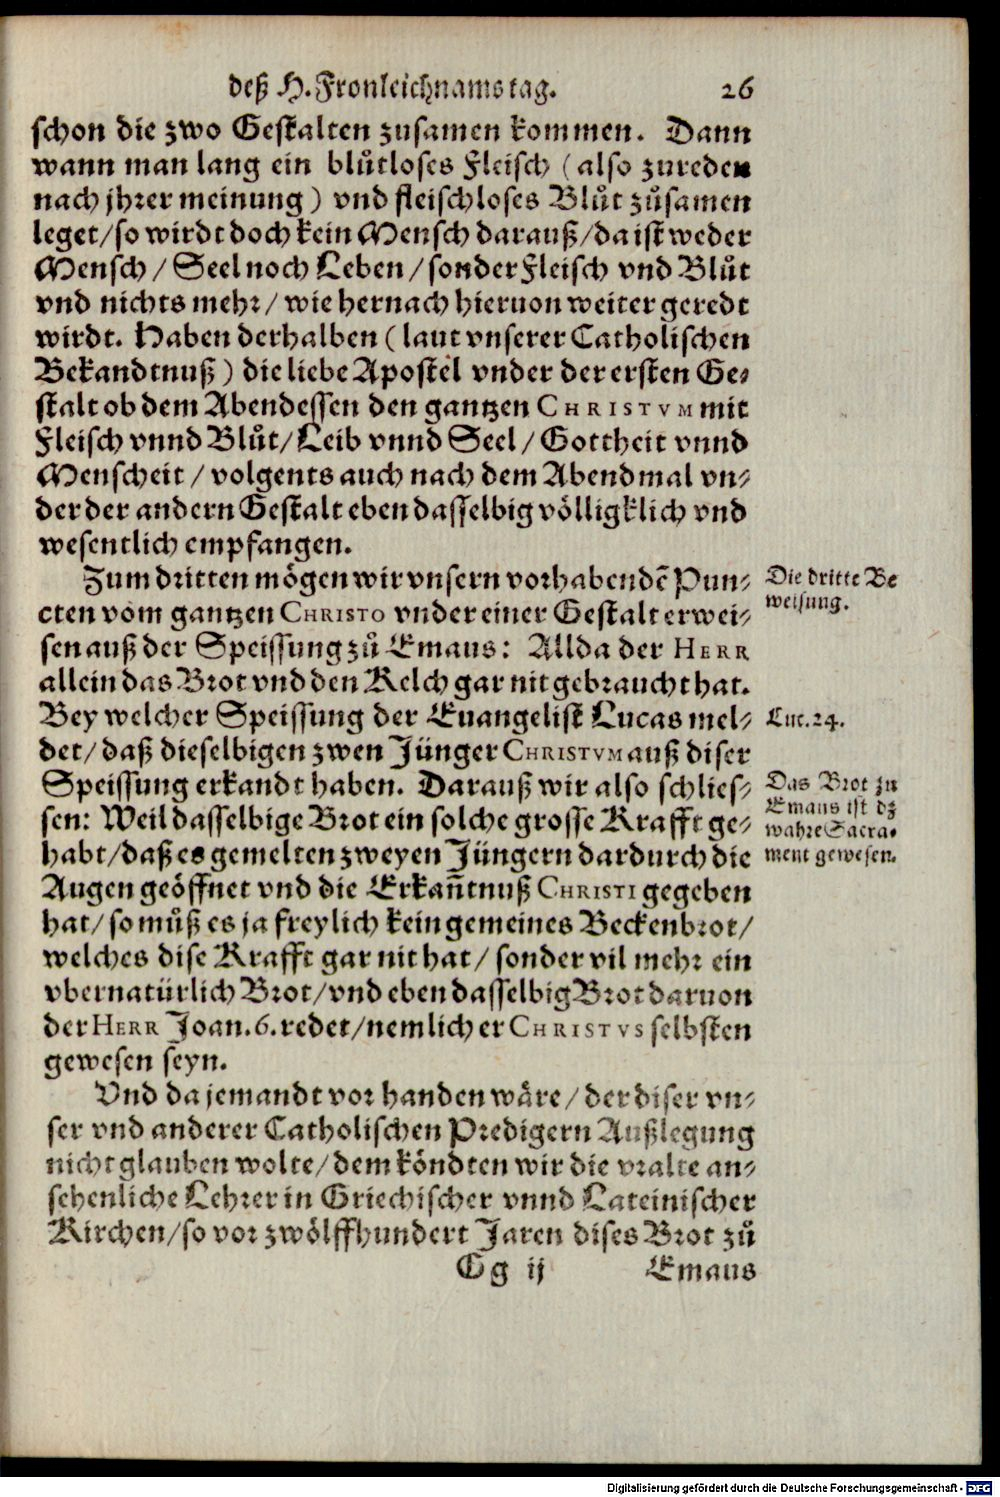 deß H. Fronleichnams tag. 26
schon die zwo Gestalten zusamen kommen. Dann
wann man lang ein blůtloses Fleisch (also zureden
nach jhrer meinung) vnd fleischloses Blůt zůsamen
leget/ so wirdt doch kein Mensch darauß/ da ist weder
Mensch/ Seel noch Leben/ sonder Fleisch vnd Blůt
vnd nichts mehr/ wie hernach hieruon weiter geredt
wirdt. Haben derhalben (laut vnserer Catholischen
Bekandtnuß) die liebe Apostel vnder der ersten Ge-
stalt ob dem Abendessen den gantzen CHRISTVM mit
Fleisch vnnd Blůt/ Leib vnnd Seel/ Gottheit vnnd
Menscheit/ volgents auch nach dem Abendmal vn-
der der andern Gestalt eben dasselbig völligklich vnd
wesentlich empfangen.
Zum dritten mögen wir vnsern vorhabendē Pun-
cten vom gantzen CHRISTO vnder einer Gestalt erwei-
sen auß der Speissung zů Emaus: Allda der HERR
allein das Brot vnd den Kelch gar nit gebraucht hat.
Bey welcher Speissung der Euangelist Lucas mel-
det/ daß dieselbigen zwen Jünger CHRISTVM auß diser
Speissung erkandt haben. Darauß wir also schlies-
sen: Weil dasselbige Brot ein solche grosse Krafft ge-
habt/ daß es gemelten zweyen Jüngern dardurch die
Augen geöffnet vnd die Erkañtnuß CHRISTI gegeben
hat/ so můß es ja freylich kein gemeines Beckenbrot/
welches dise Krafft gar nit hat/ sonder vil mehr ein
vbernatürlich Brot/ vnd eben dasselbig Brot daruon
der HERR Joan. 6. redet/ nemlich er CHRISTVS selbsten
gewesen seyn.
Vnd da jemandt vor handen wäre/ der diser vn-
ser vnd anderer Catholischen Predigern Außlegung
nicht glauben wolte/ dem köndten wir die vralte an-
sehenliche Lehrer in Griechischer vnnd Lateinischer
Kirchen/ so vor zwölffhundert Jaren dises Brot zů
Gg ij Emaus
Die dritte Be
weisung.
Luc. 24.
Das Brot zu
Emaus ist dz
wahre Sacra-
ment gewesen.
Digitalisierung gefördert durch die Deutsche Forschungsgemeinschaft - DFG